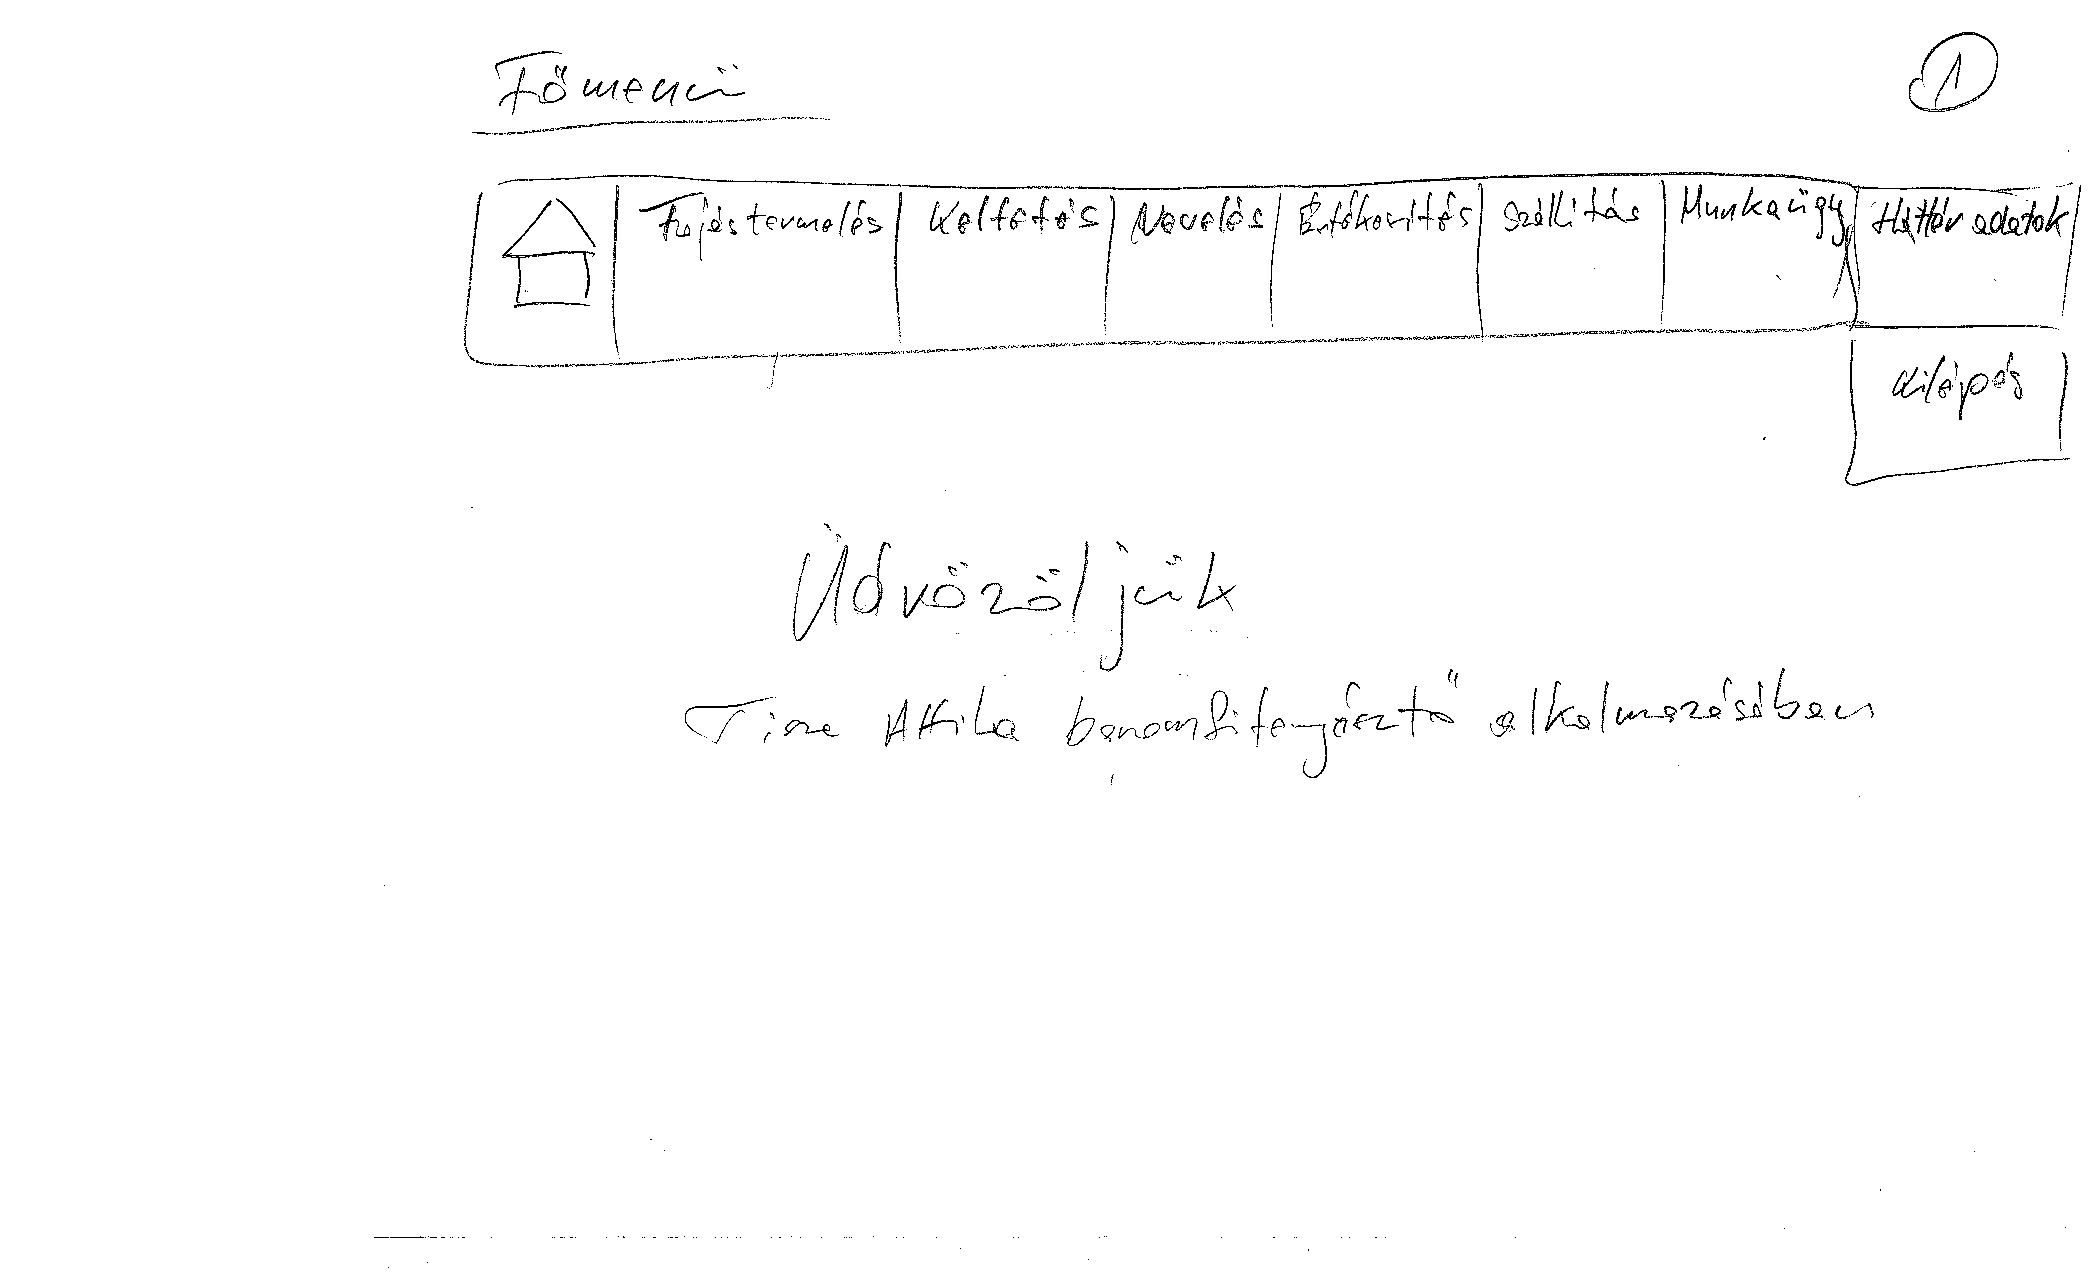 Főmenü
1
Tojástermelés Keltetés Nevelés Értékesítés Szállítás Munkaügy Háttér adatok
Kilépés
Üdvözöljük
Attila baromfitenyésztő alkalmazásában